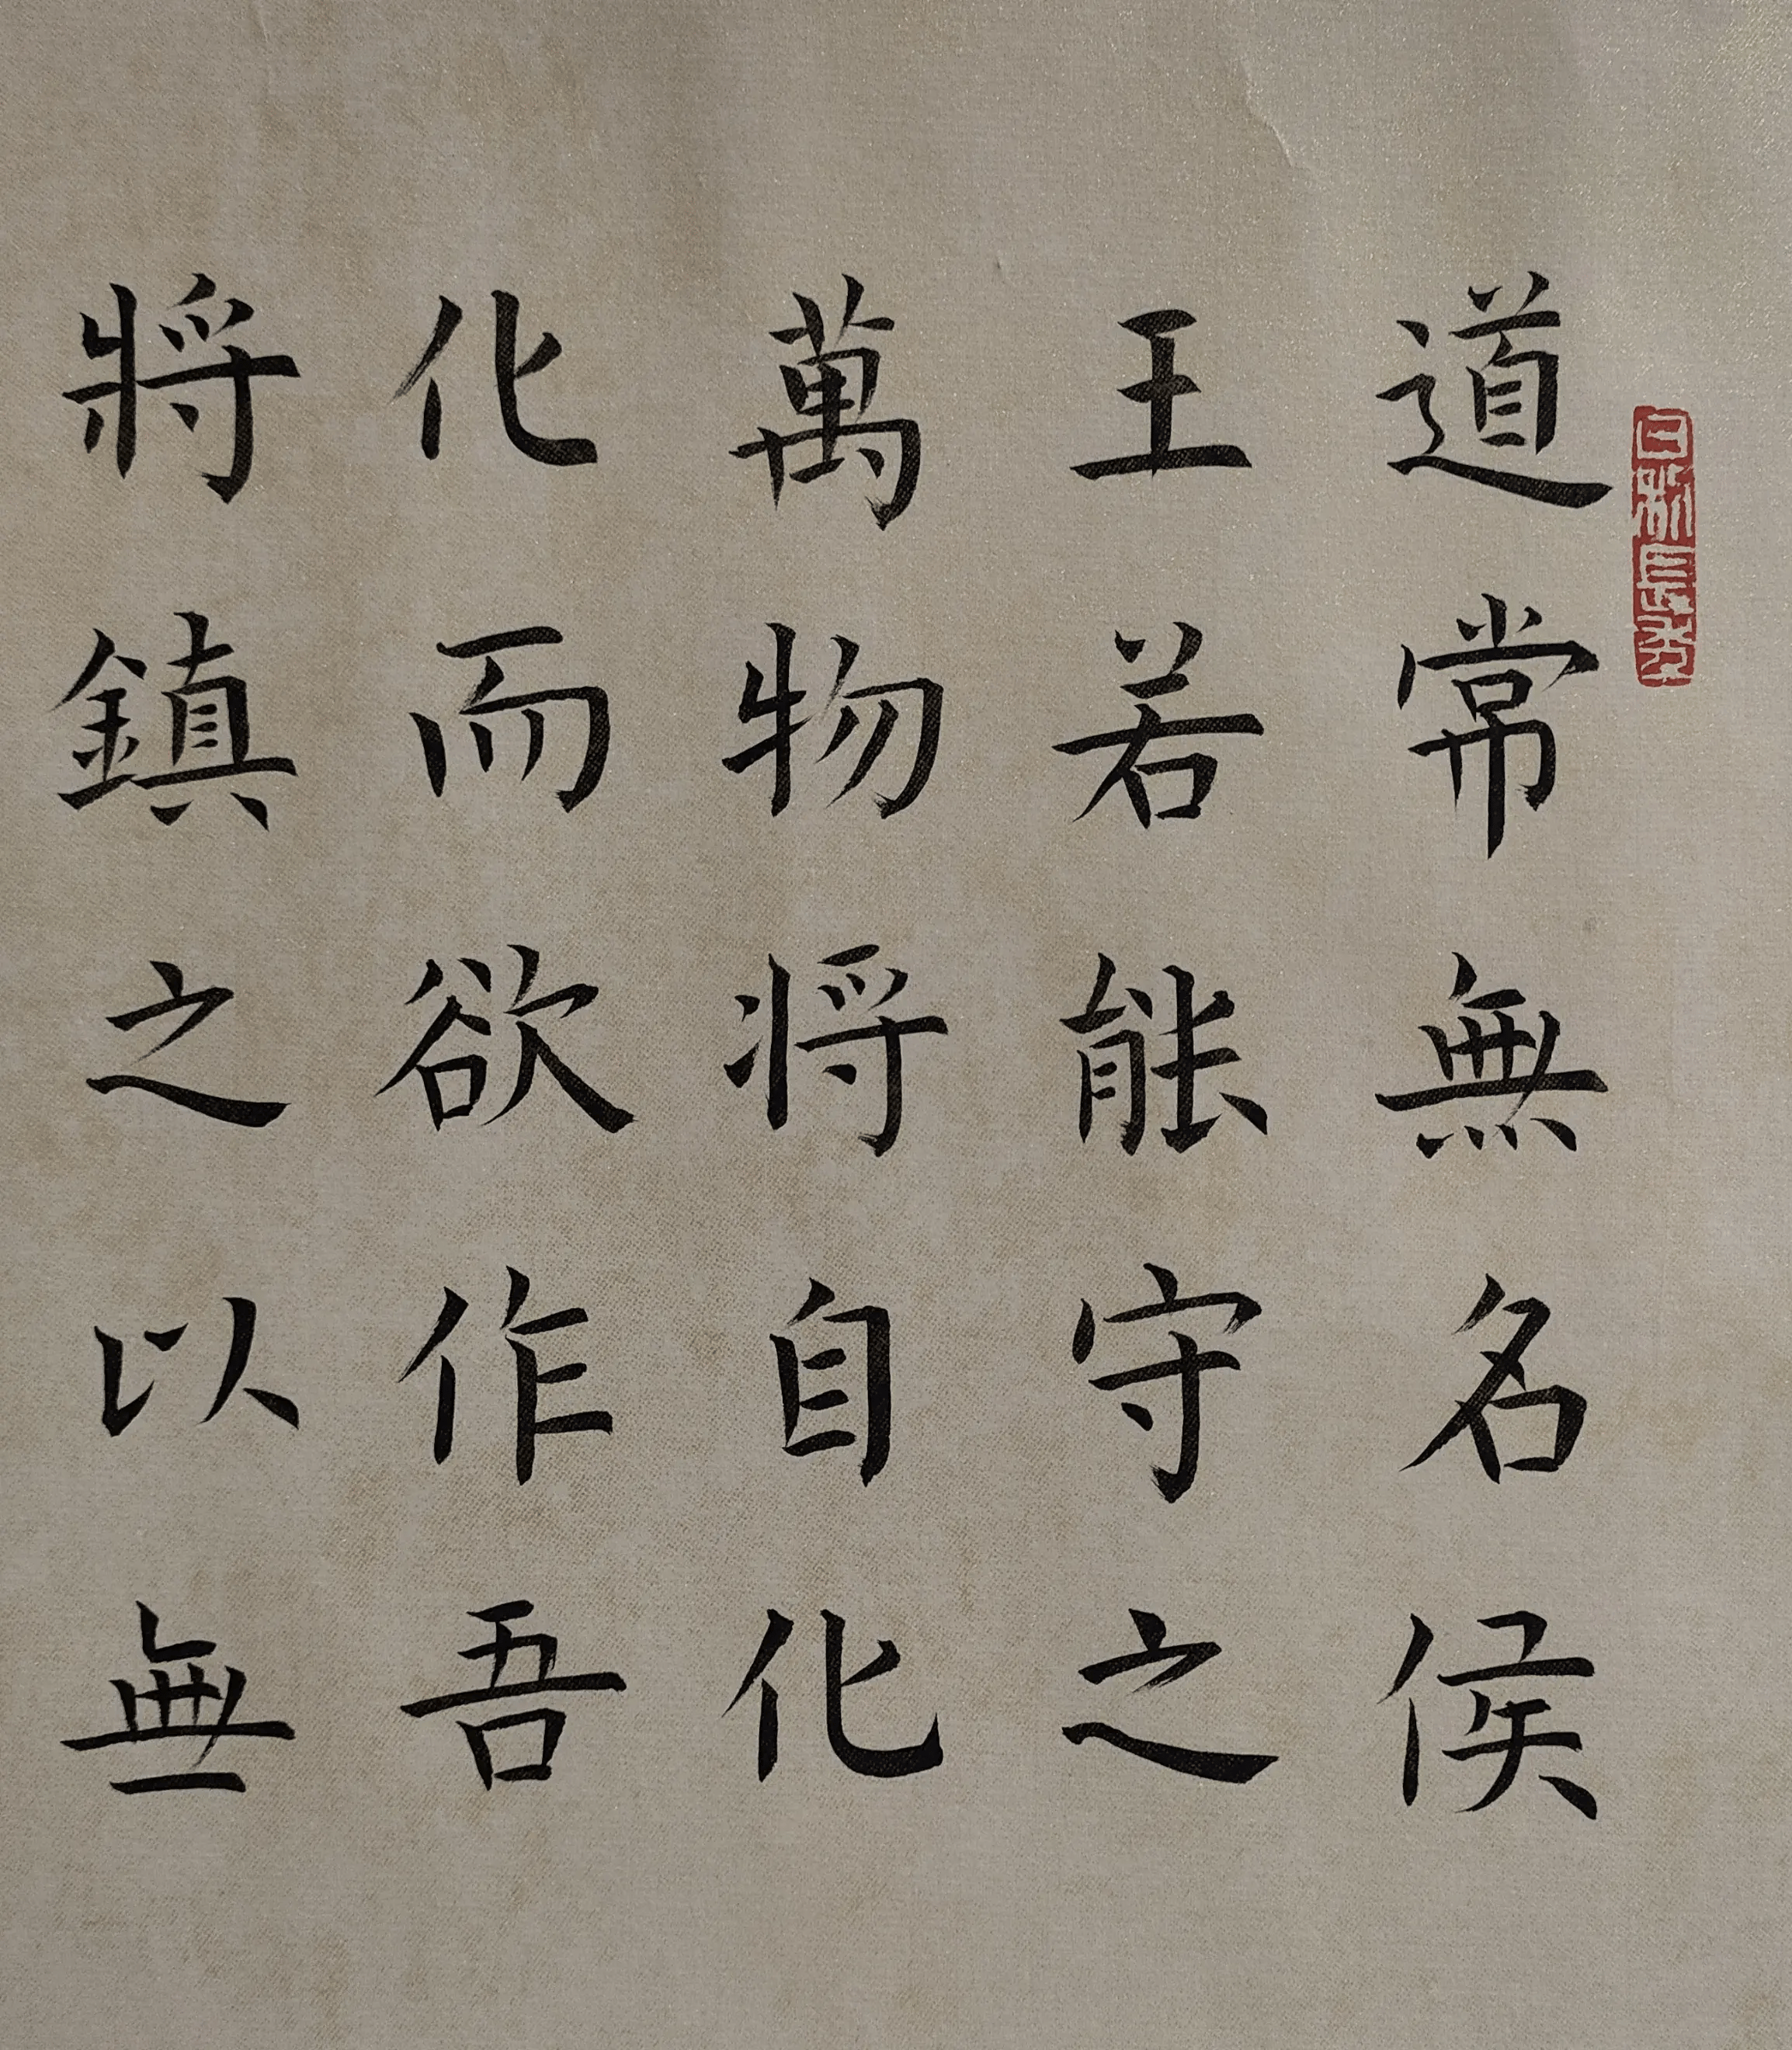 道常無名侯
王若能守之
萬物将自化
化而欲作吾
將鎮之以無